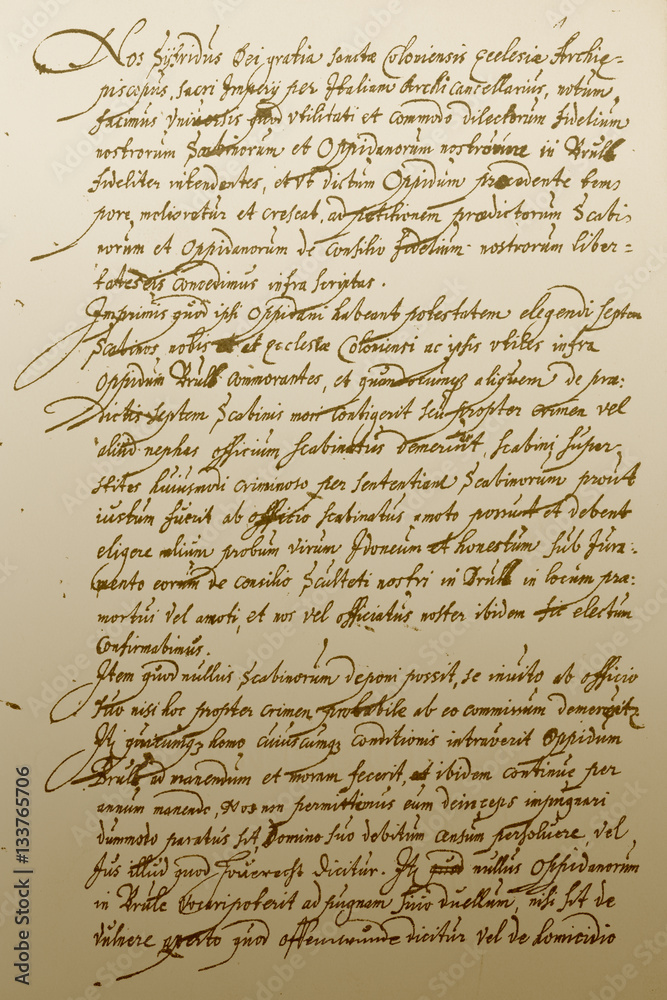 Nos Syfridus Dei gratia sanctæ Coloniensis Ecclesiæ Archie-
piscopus, sacri Imperij per Italiam Archicancellarius, notum
facimus Universis quod utilitati et commodo dilectorum fidelium
nostrorum Scabinorum et Oppidanorum nostrorum in Brull
fideliter intendentes, et ut dictum Oppidum præcedente tem
pore melioretur et crescat, ad petitionem prædictorum Scabi-
norum et Oppidanorum de consilio fidelium nostrorum liber-
tates eis concedimus infra scriptas.
Imprimis quod ipsi Oppidani habeant potestatem elegendi septem
Scabinos nobis et Ecclesiæ Coloniensi ac ipsis utiles infra
Oppidum Brull commorantes, et quandocumq aliquem de præ-
dictis septem Scabinis mori contigerit seu propter crimen vel
aliud nephas officium scabinatus demeruit, scabini super-
stites huiusmodi criminoso per sententiam Scabinorum prout
iustum fuerit ab officio scabinatus amoto possunt et debent
eligere alium probum virum Idoneum et honestum sub Jura-
mento eorum de consilio Sculteti nostri in Brull in locum præ-
mortui vel amoti, et nos vel officiatus noster ibidem sic electum
Confirmabimus.
Item quod nullus Scabinorum deponi possit, se invito ab officio
suo nisi hoc propter crimen probabile ab eo commissum
It quicumq homo cuiuscumq conditionis intraverit Oppidum
Brull, ad manendum et moram fecerit, et ibidem continue per
annum manendo, Nos non permittimus eum deinceps impugnari
dummodo paratus sit, Domino suo debitum censum persoluere, vel
Jus illud quod dicitur. It quod nullus Oppidanorum
in Brule vocari poterit ad pugnam sivo duellum, nisi sit de
vulnere aperto quod offenwunde dicitur vel de homicidio
Adobe Stock | #133765706